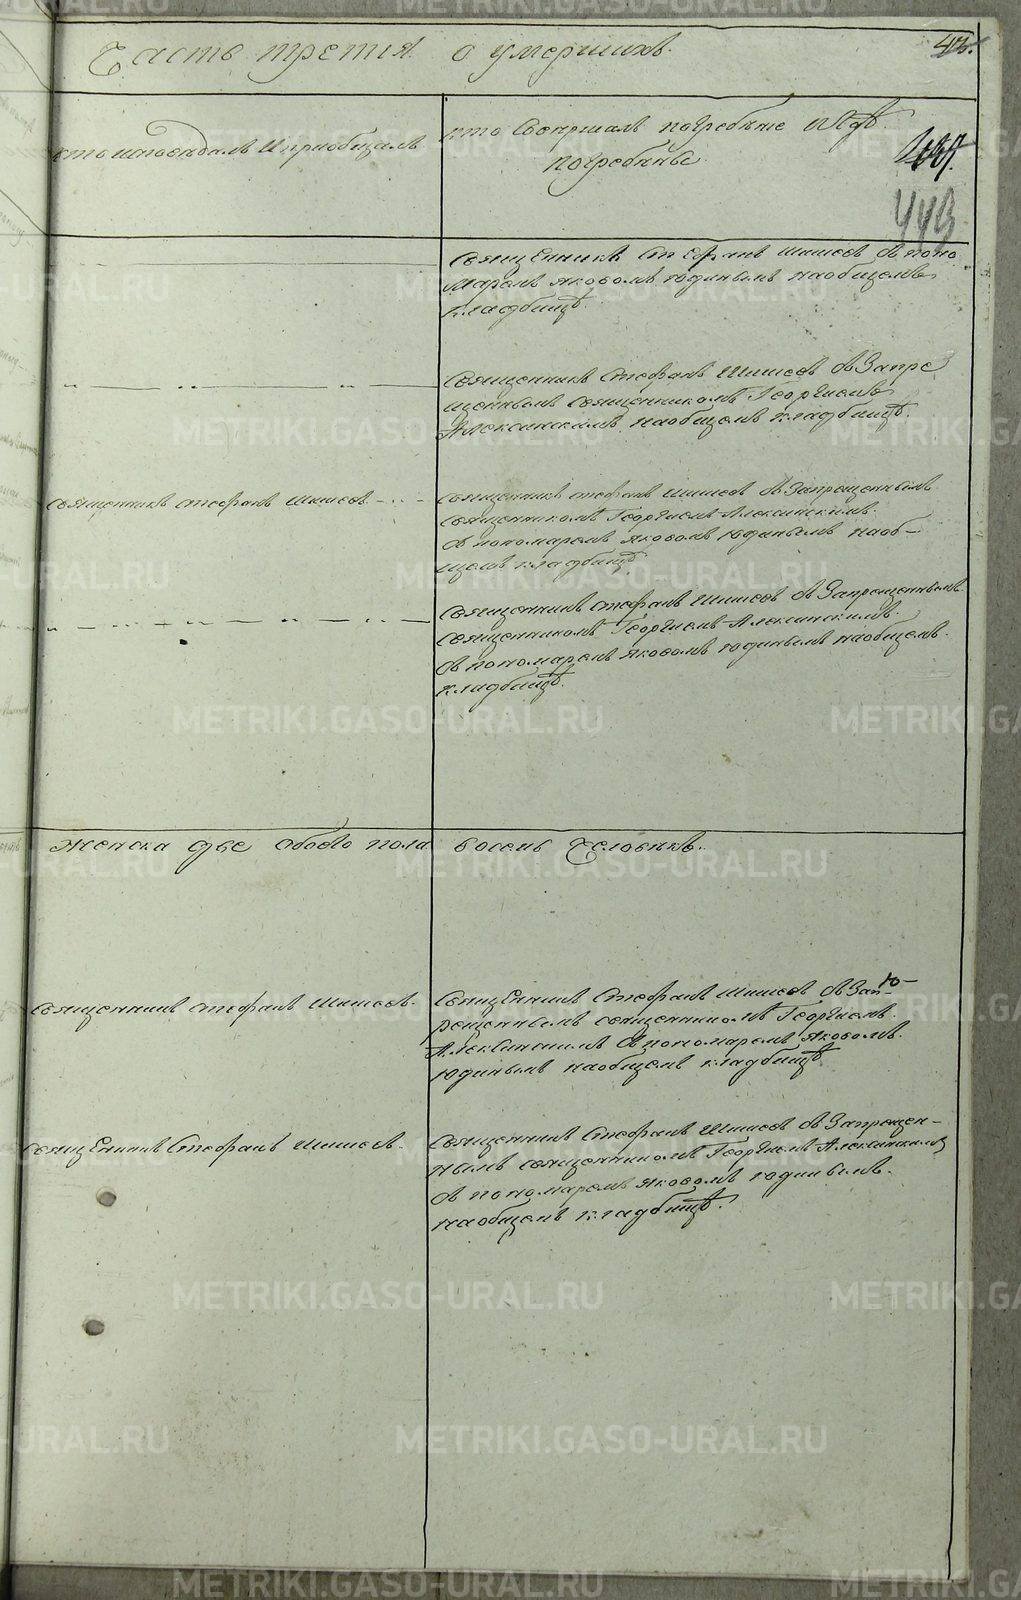 Часть третия о умершихъ.
43.
кто исповедалъ и приобщалъ
кто совершалъ погребѣние и где
погребены
443
Священникъ Стефанъ Шишевъ съ поно
маремъ Яковомъ Юдинымъ наобщемъ
кладбищѣ.
Священникъ Стефанъ Шишевъ съ Запре
щеннымъ священникомъ Георгиемъ
Алексинскимъ наобщемъ кладбищѣ.
священникъ стефанъ Шишевъ
священникъ стефанъ Шишевъ съ Запрещеннымъ
священникомъ Георгиемъ Алексинскимъ.
съ пономаремъ Яковомъ Юдинымъ наоб-
щемъ кладбищѣ
Священникъ стефанъ Шишевъ съ Запрещеннымъ
священникомъ Георгиемъ Алексинскимъ.
съ пономаремъ Яковомъ Юдинымъ наобщемъ.
кладбищѣ.
женска две обоего пола восемь Человѣкъ.
священникъ стефанъ Шишевъ.
Священникъ Стефанъ Шишевъ съ Зап-
рещеннымъ священникомъ Георгиемъ.
Алексинскимъ съ пономаремъ Яковомъ.
Юдинымъ наобщемъ кладбищѣ
Священникъ Стефанъ Шишевъ.
Священникъ Стефанъ Шишевъ съ Запрещен-
нымъ священникомъ Георгиемъ Алексинскимъ
съ пономаремъ Яковомъ Юдинымъ.
наобщемъ кладбищѣ.
METRIKI.GASO-URAL.RU